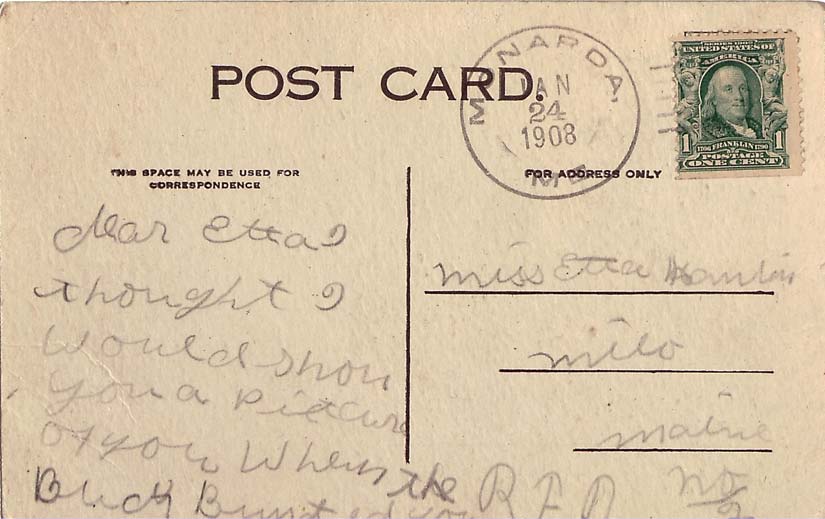 POST CARD.
MONARDA,
JAN
24
1908
ME
SERIES 1902
UNITED STATES OF
AMERICA
1706 FRANKLIN 1790
1 POSTAGE 1
ONE CENT
THIS SPACE MAY BE USED FOR
CORRESPONDENCE
FOR ADDRESS ONLY
Dear Etta I
thought I
would show
you a Picture
of you When the
Buck Bunted you
Miss Etta
Milo
Maine
R F D no
2